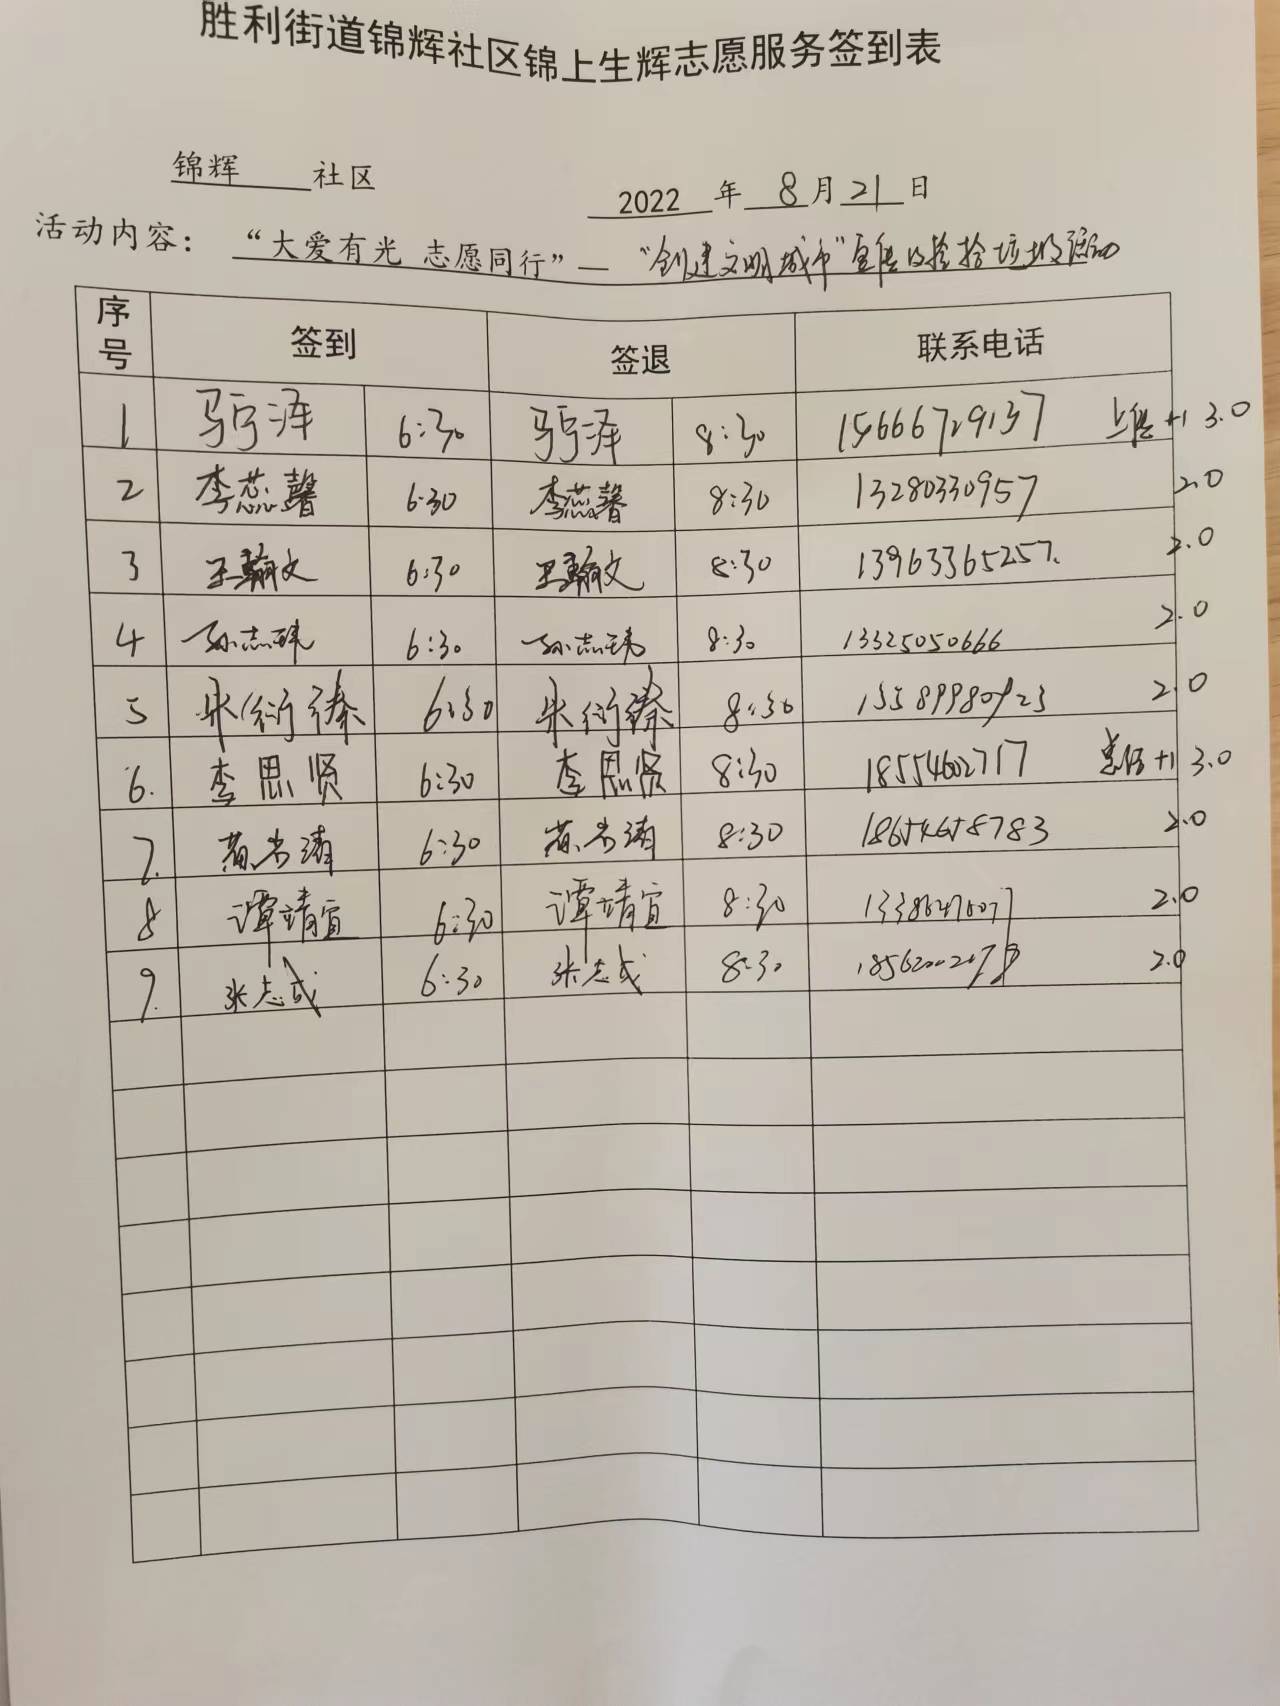 胜利街道锦辉社区锦上生辉志愿服务签到表
锦辉 社区
2022 年 8 月 21 日
活动内容：“大爱有光 志愿同行”— “创建文明城市”宣传及捡拾垃圾活动
序号 签到 签退 联系电话
1 马宁泽 6:30 马宁泽 8:30 15666729137 上传+1 3.0
2 李蕊馨 6:30 李蕊馨 8:30 13280330957 2.0
3 王翰文 6:30 王翰文 8:30 13963365257. 2.0
4 孙志玮 6:30 孙志玮 8:30 13325050666 2.0
5 宋衍 6:30 宋衍 8:30 13589980923 2.0
6. 李思贤 6:30 李思贤 8:30 18554602717 +1 3.0
7. 6:30 8:30 18654658783 2.0
8 谭靖宜 6:30 谭靖宜 8:30 2.0
9. 张志成 6:30 张志成 8:30 2.0